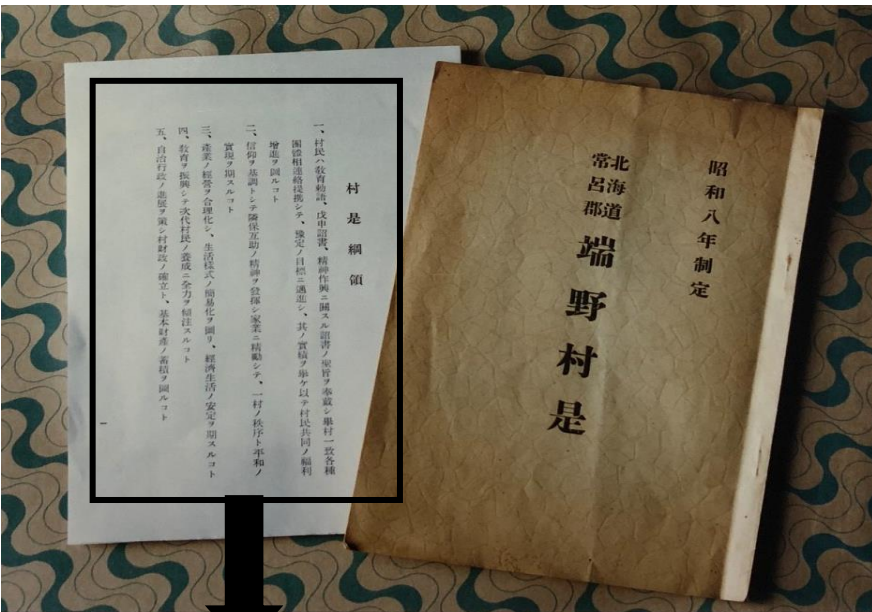 村是綱領
一、村民ハ教育勅語、戊申詔書、精神作興ニ關スル詔書ノ聖旨ヲ奉戴シ擧村一致各種
團體相連絡提携シテ、豫定ノ目標ニ邁進シ、其ノ實績ヲ擧ケ以テ村民共同ノ福利
增進ヲ圖ルコト
二、信仰ヲ基調トシテ隣保互助ノ精神ヲ發揮シ家業ニ精勵シテ、一村ノ秩序ト平和ノ
實現ヲ期スルコト
三、產業ノ經營ヲ合理化シ、生活樣式ノ簡易化ヲ圖リ、經濟生活ノ安定ヲ期スルコト
四、敎育ヲ振興シテ次代村民ノ養成ニ全力ヲ傾注スルコト
五、自治行政ノ進展ヲ策シ村財政ノ確立ト、基本財產ノ蓄積ヲ圖ルコト
昭和八年制定
北海道
常呂郡
端野村是